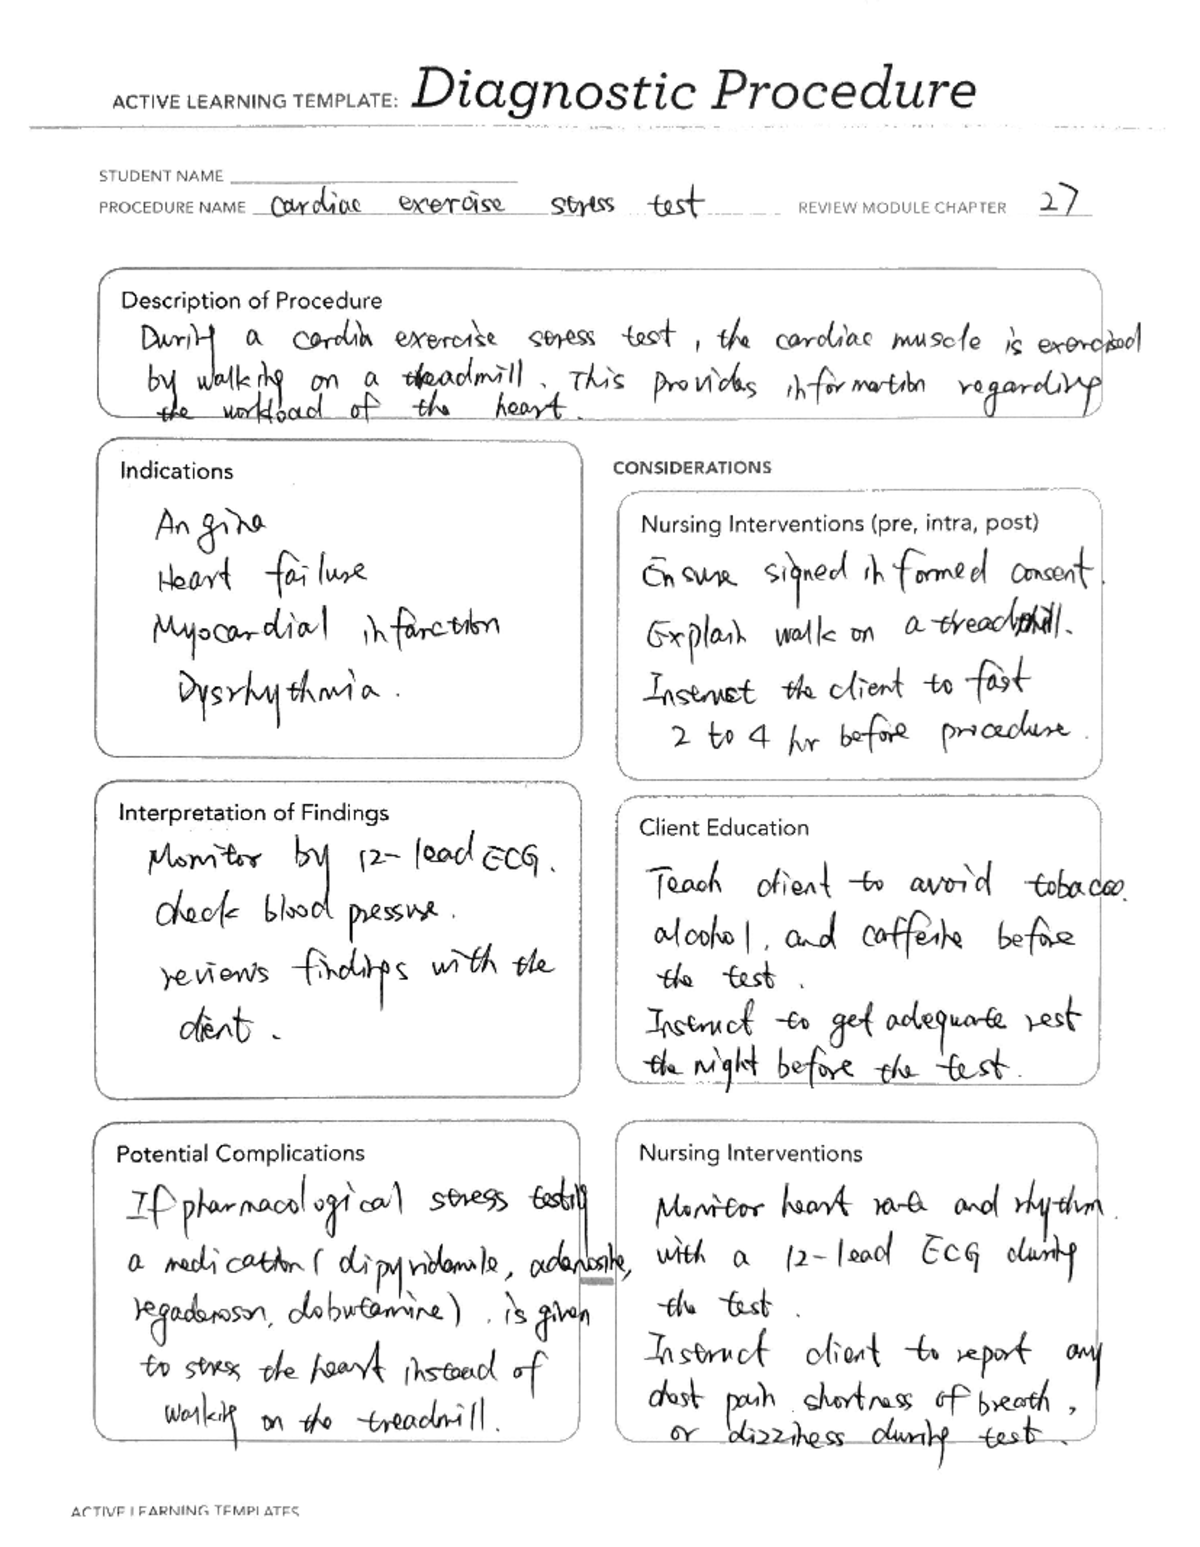 ACTIVE LEARNING TEMPLATE: Diagnostic Procedure
STUDENT NAME
PROCEDURE NAME cardiac exercise stress test REVIEW MODULE CHAPTER 27
Description of Procedure
During a cardia exercise stress test, the cardiac muscle is exercised
by walking on a treadmill. This provides information regarding
the workload of the heart.
Indications
Angina
Heart failure
Myocardial infarction
Dysrhythmia.
CONSIDERATIONS
Nursing Interventions (pre, intra, post)
Ensure signed informed consent.
Explain walk on a treadmill.
Instruct the client to fast
2 to 4 hr before procedure.
Interpretation of Findings
Monitor by 12-lead ECG.
check blood pressure.
reviews findings with the
client.
Client Education
Teach client to avoid tobacco.
alcohol, and caffeine before
the test.
Instruct to get adequate rest
the night before the test.
Potential Complications
If pharmacological stress testing
a medication (dipyridamole, adenosine,
regadenoson, dobutamine). is given
to stress the heart instead of
walking on the treadmill.
Nursing Interventions
Monitor heart rate and rhythm.
with a 12-lead ECG during
the test.
Instruct client to report any
chest pain. shortness of breath,
or dizziness during test.
ACTIVE LEARNING TEMPLATES